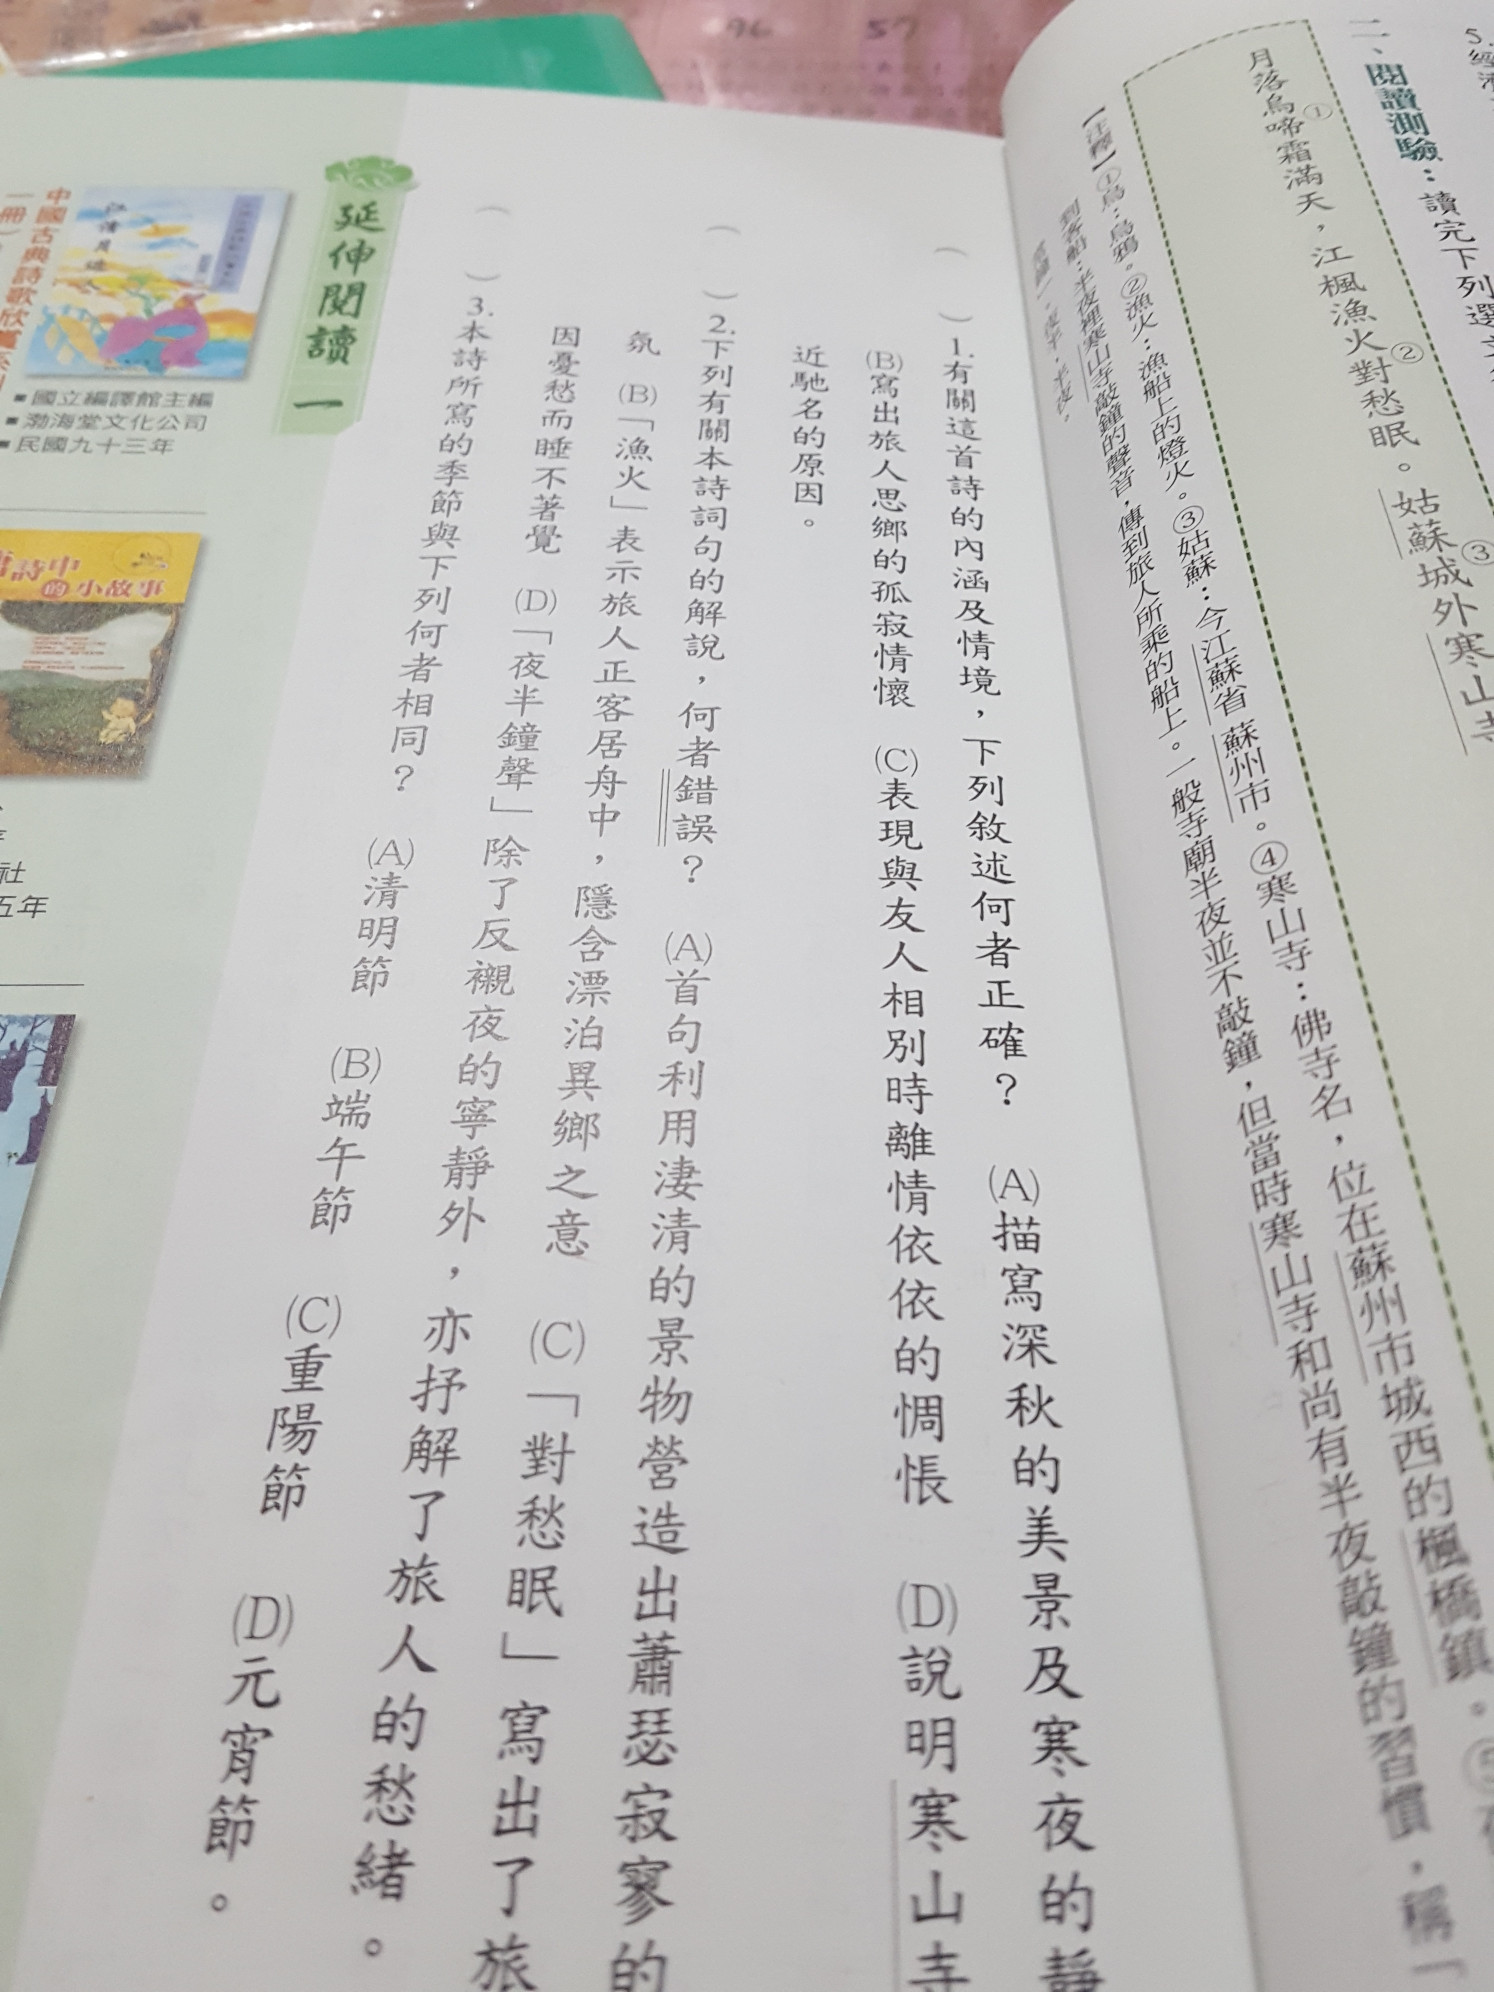 96
57
二、閱讀測驗：讀完下列選
月落烏啼霜滿天，江楓漁火對愁眠。姑蘇城外寒山寺
【注釋】①烏：烏鴉。②漁火：漁船上的燈火。③姑蘇：今江蘇省蘇州市。④寒山寺：佛寺名，位在蘇州市城西的楓橋鎮。⑤
到客船：半夜裡寒山寺敲鐘的聲音，傳到旅人所乘的船上。一般寺廟半夜並不敲鐘，但當時寒山寺和尚有半夜敲鐘的習慣，稱「
(　)1.有關這首詩的內涵及情境，下列敘述何者正確？　(A)描寫深秋的美景及寒夜的靜
(B)寫出旅人思鄉的孤寂情懷　(C)表現與友人相別時離情依依的惆悵　(D)說明寒山寺
近馳名的原因。
(　)2.下列有關本詩詞句的解說，何者錯誤？　(A)首句利用淒清的景物營造出蕭瑟寂寥的
氛　(B)「漁火」表示旅人正客居舟中，隱含漂泊異鄉之意　(C)「對愁眠」寫出了旅
因憂愁而睡不著覺　(D)「夜半鐘聲」除了反襯夜的寧靜外，亦抒解了旅人的愁緒。
(　)3.本詩所寫的季節與下列何者相同？　(A)清明節　(B)端午節　(C)重陽節　(D)元宵節。
延伸閱讀一
中國古典詩歌欣
一冊
▪國立編譯館主編
▪渤海堂文化公司
▪民國九十三年
詩中的小故事
社
五年